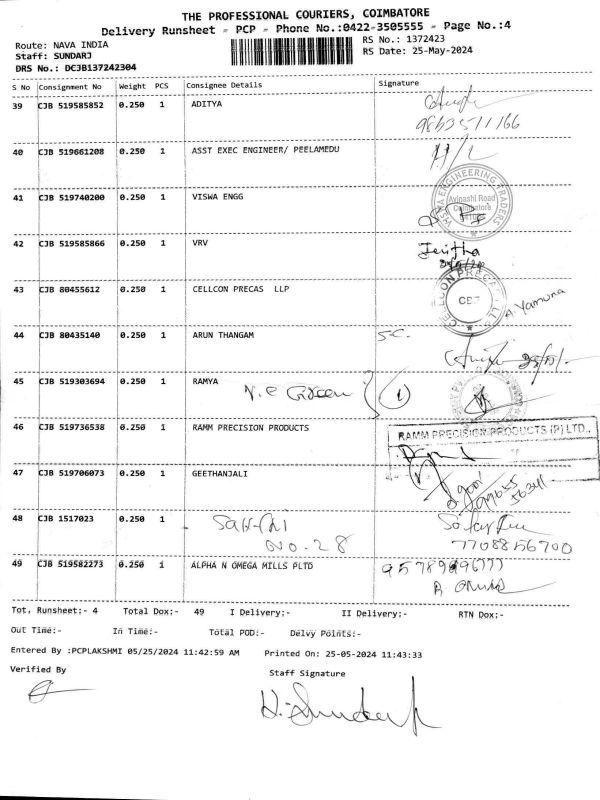 THE PROFESSIONAL COURIERS, COIMBATORE
Delivery Runsheet - PCP - Phone No.:0422-3505555 - Page No.:4
Route: NAVA INDIA
Staff: SUNDARJ
DRS No.: DCJB137242304
RS No.: 1372423
RS Date: 25-May-2024
S No Consignment No Weight PCS Consignee Details Signature
39 CJB 519585852 0.250 1 ADITYA
40 CJB 519661208 0.250 1 ASST EXEC ENGINEER/ PEELAMEDU
41 CJB 519740200 0.250 1 VISWA ENGG
VISWA ENGINEERING TRADERS
Avinashi Road
Coimbatore
42 CJB 519585866 0.250 1 VRV
43 CJB 80455612 0.250 1 CELLCON PRECAS LLP
A. Yamuna
44 CJB 80435140 0.250 1 ARUN THANGAM S.C.
45 CJB 519303694 0.250 1 RAMYA
46 CJB 519736538 0.250 1 RAMM PRECISION PRODUCTS
RAMM PRECISION PRODUCTS (P) LTD.,
47 CJB 519706073 0.250 1 GEETHANJALI
48 CJB 1517023 0.250 1
NO. 28
7708856700
49 CJB 519582273 0.250 1 ALPHA N OMEGA MILLS PLTD
Tot, Runsheet:- 4 Total Dox:- 49 I Delivery:- II Delivery:- RTN Dox:-
Out Time:- In Time:- Total POD:- Delvy Points:-
Entered By :PCPLAKSHMI 05/25/2024 11:42:59 AM Printed On: 25-05-2024 11:43:33
Verified By
Staff Signature